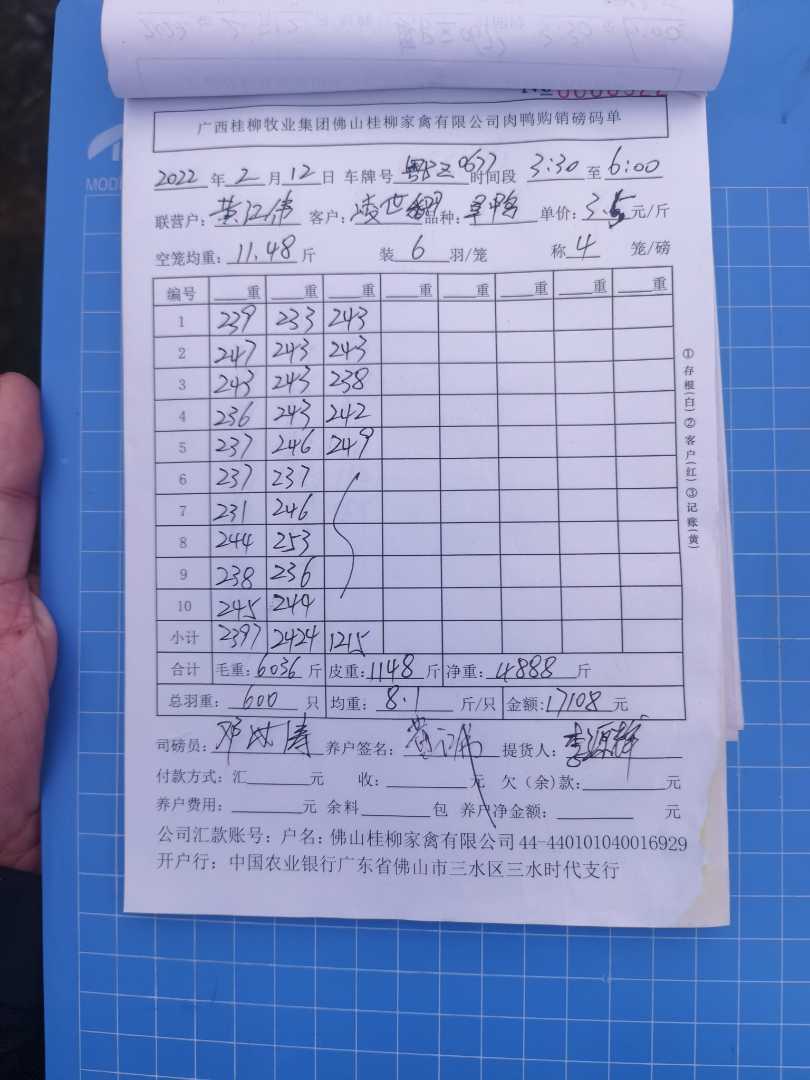 MOD
№ 0000322
广西桂柳牧业集团佛山桂柳家禽有限公司肉鸭购销磅码单
2022 年 2 月 12 日 车牌号 0637 时间段 3:30 至 6:00
联营户: 黄江伟 客户: 凌世 品种: 单价: 3.5 元/斤
空笼均重: 11.48 斤 装 6 羽/笼 称 4 笼/磅
编号 重 重 重 重 重 重 重 重
1 239 233 243
2 247 243 243
3 243 243 238
4 236 243 242
5 237 246 249
6 237 237
7 231 246
8 244 253
9 238 236
10 245 244
小计 2397 2424 1215
合计 毛重: 6036 斤 皮重: 1148 斤 净重: 4888 斤
总羽重: 600 只 均重: 8.1 斤/只 金额: 17108 元
司磅员: 养户签名: 提货人: 李源
付款方式: 汇 元 收: 元 欠(余)款: 元
养户费用: 元 余料 包 养户净金额: 元
公司汇款账号: 户名: 佛山桂柳家禽有限公司 44-440101040016929
开户行: 中国农业银行广东省佛山市三水区三水时代支行
①存根(白)②客户(红)③记账(黄)